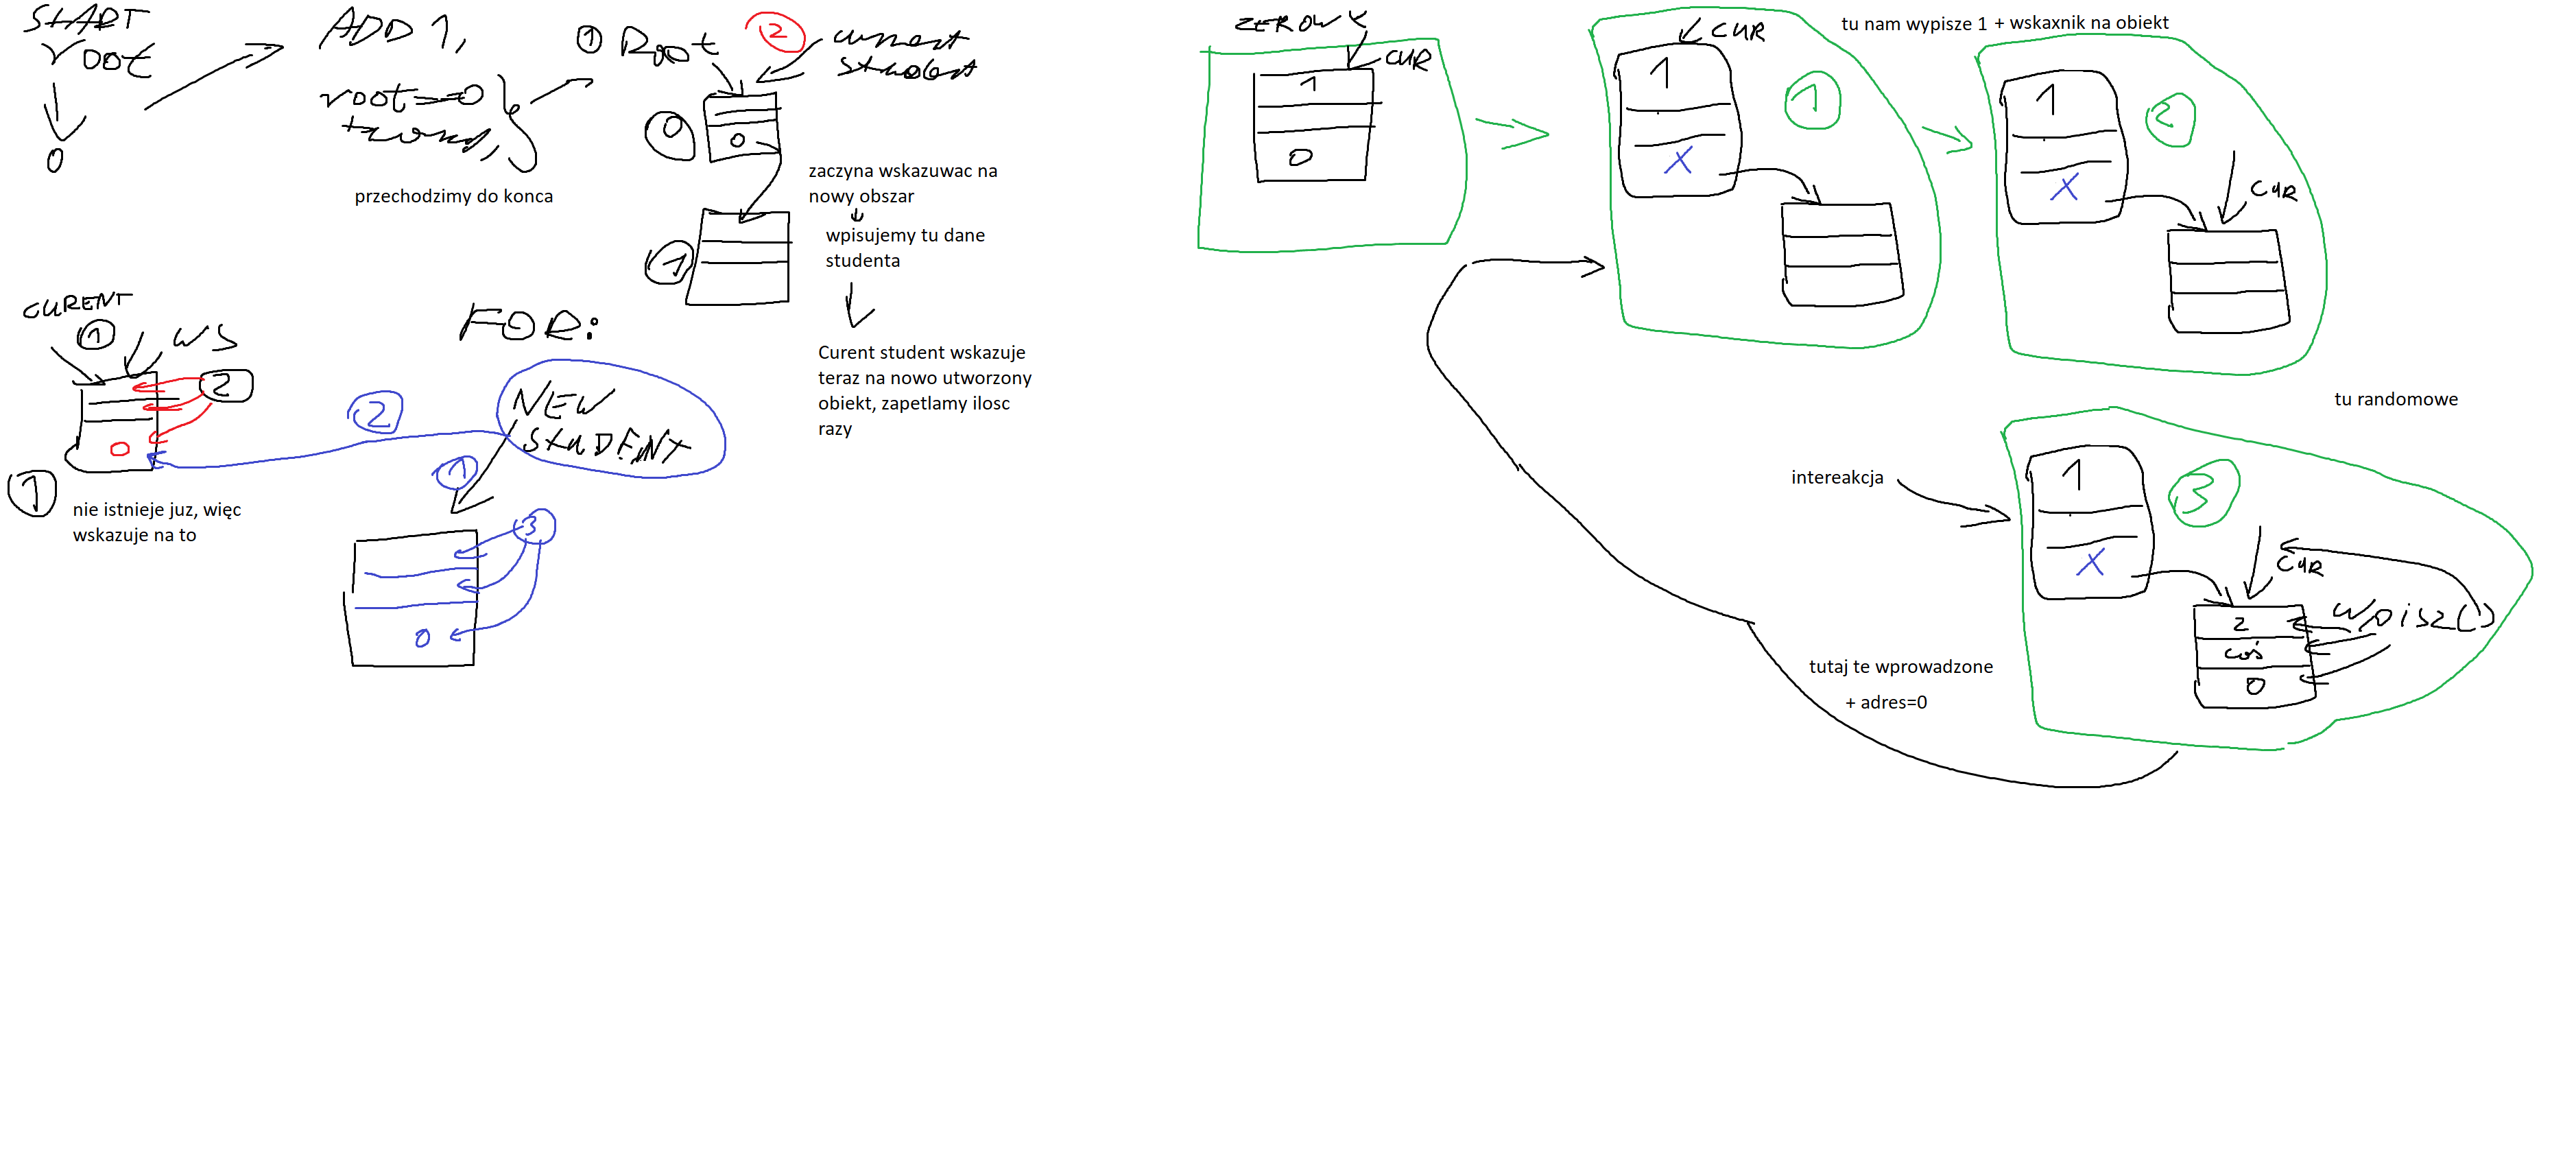 START
root
0
ADD 1,
root==0
przechodzimy do konca
① Root
②
current
student
0
0
zaczyna wskazuwac na
nowy obszar
wpisujemy tu dane
studenta
1
Curent student wskazuje
teraz na nowo utworzony
obiekt, zapetlamy ilosc
razy
CURENT
1
WS
2
0
1
nie istnieje juz, więc
wskazuje na to
FOR:
2
NEW
STUDENT
1
3
0
ZEROWY
CUR
1
0
CUR
1
X
1
tu nam wypisze 1 + wskaxnik na obiekt
1
X
2
CUR
tu randomowe
intereakcja
1
X
3
CUR
wpisz()
2
coś
0
tutaj te wprowadzone
+ adres=0